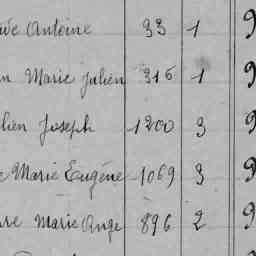 Antoine 33 1 9
Marie Julien 316 1 9
Joseph 1200 3 9
Marie Eugène 1069 3 9
Marie Ange 896 2 9